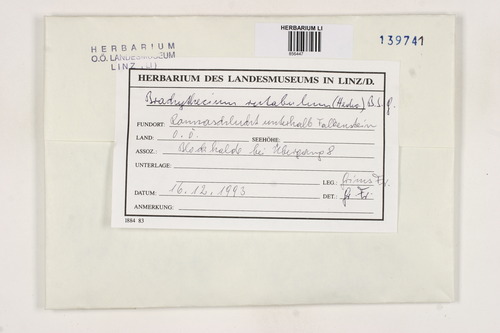 HERBARIUM
O.Ö. LANDESMUSEUM
LINZ (LI)
HERBARIUM LI
139741
HERBARIUM DES LANDESMUSEUMS IN LINZ/D.
Brachythecium rutabulum (Hedw.) B.S.G.
FUNDORT: Rannaschlucht unterhalb Falkenstein
LAND: O.Ö. SEEHÖHE:
ASSOZ.: Blockhalde bei Übergang 8
UNTERLAGE:
LEG.: Grims Fr.
DATUM: 16.12.1993 DET.: Gr Fr.
ANMERKUNG:
I884 83